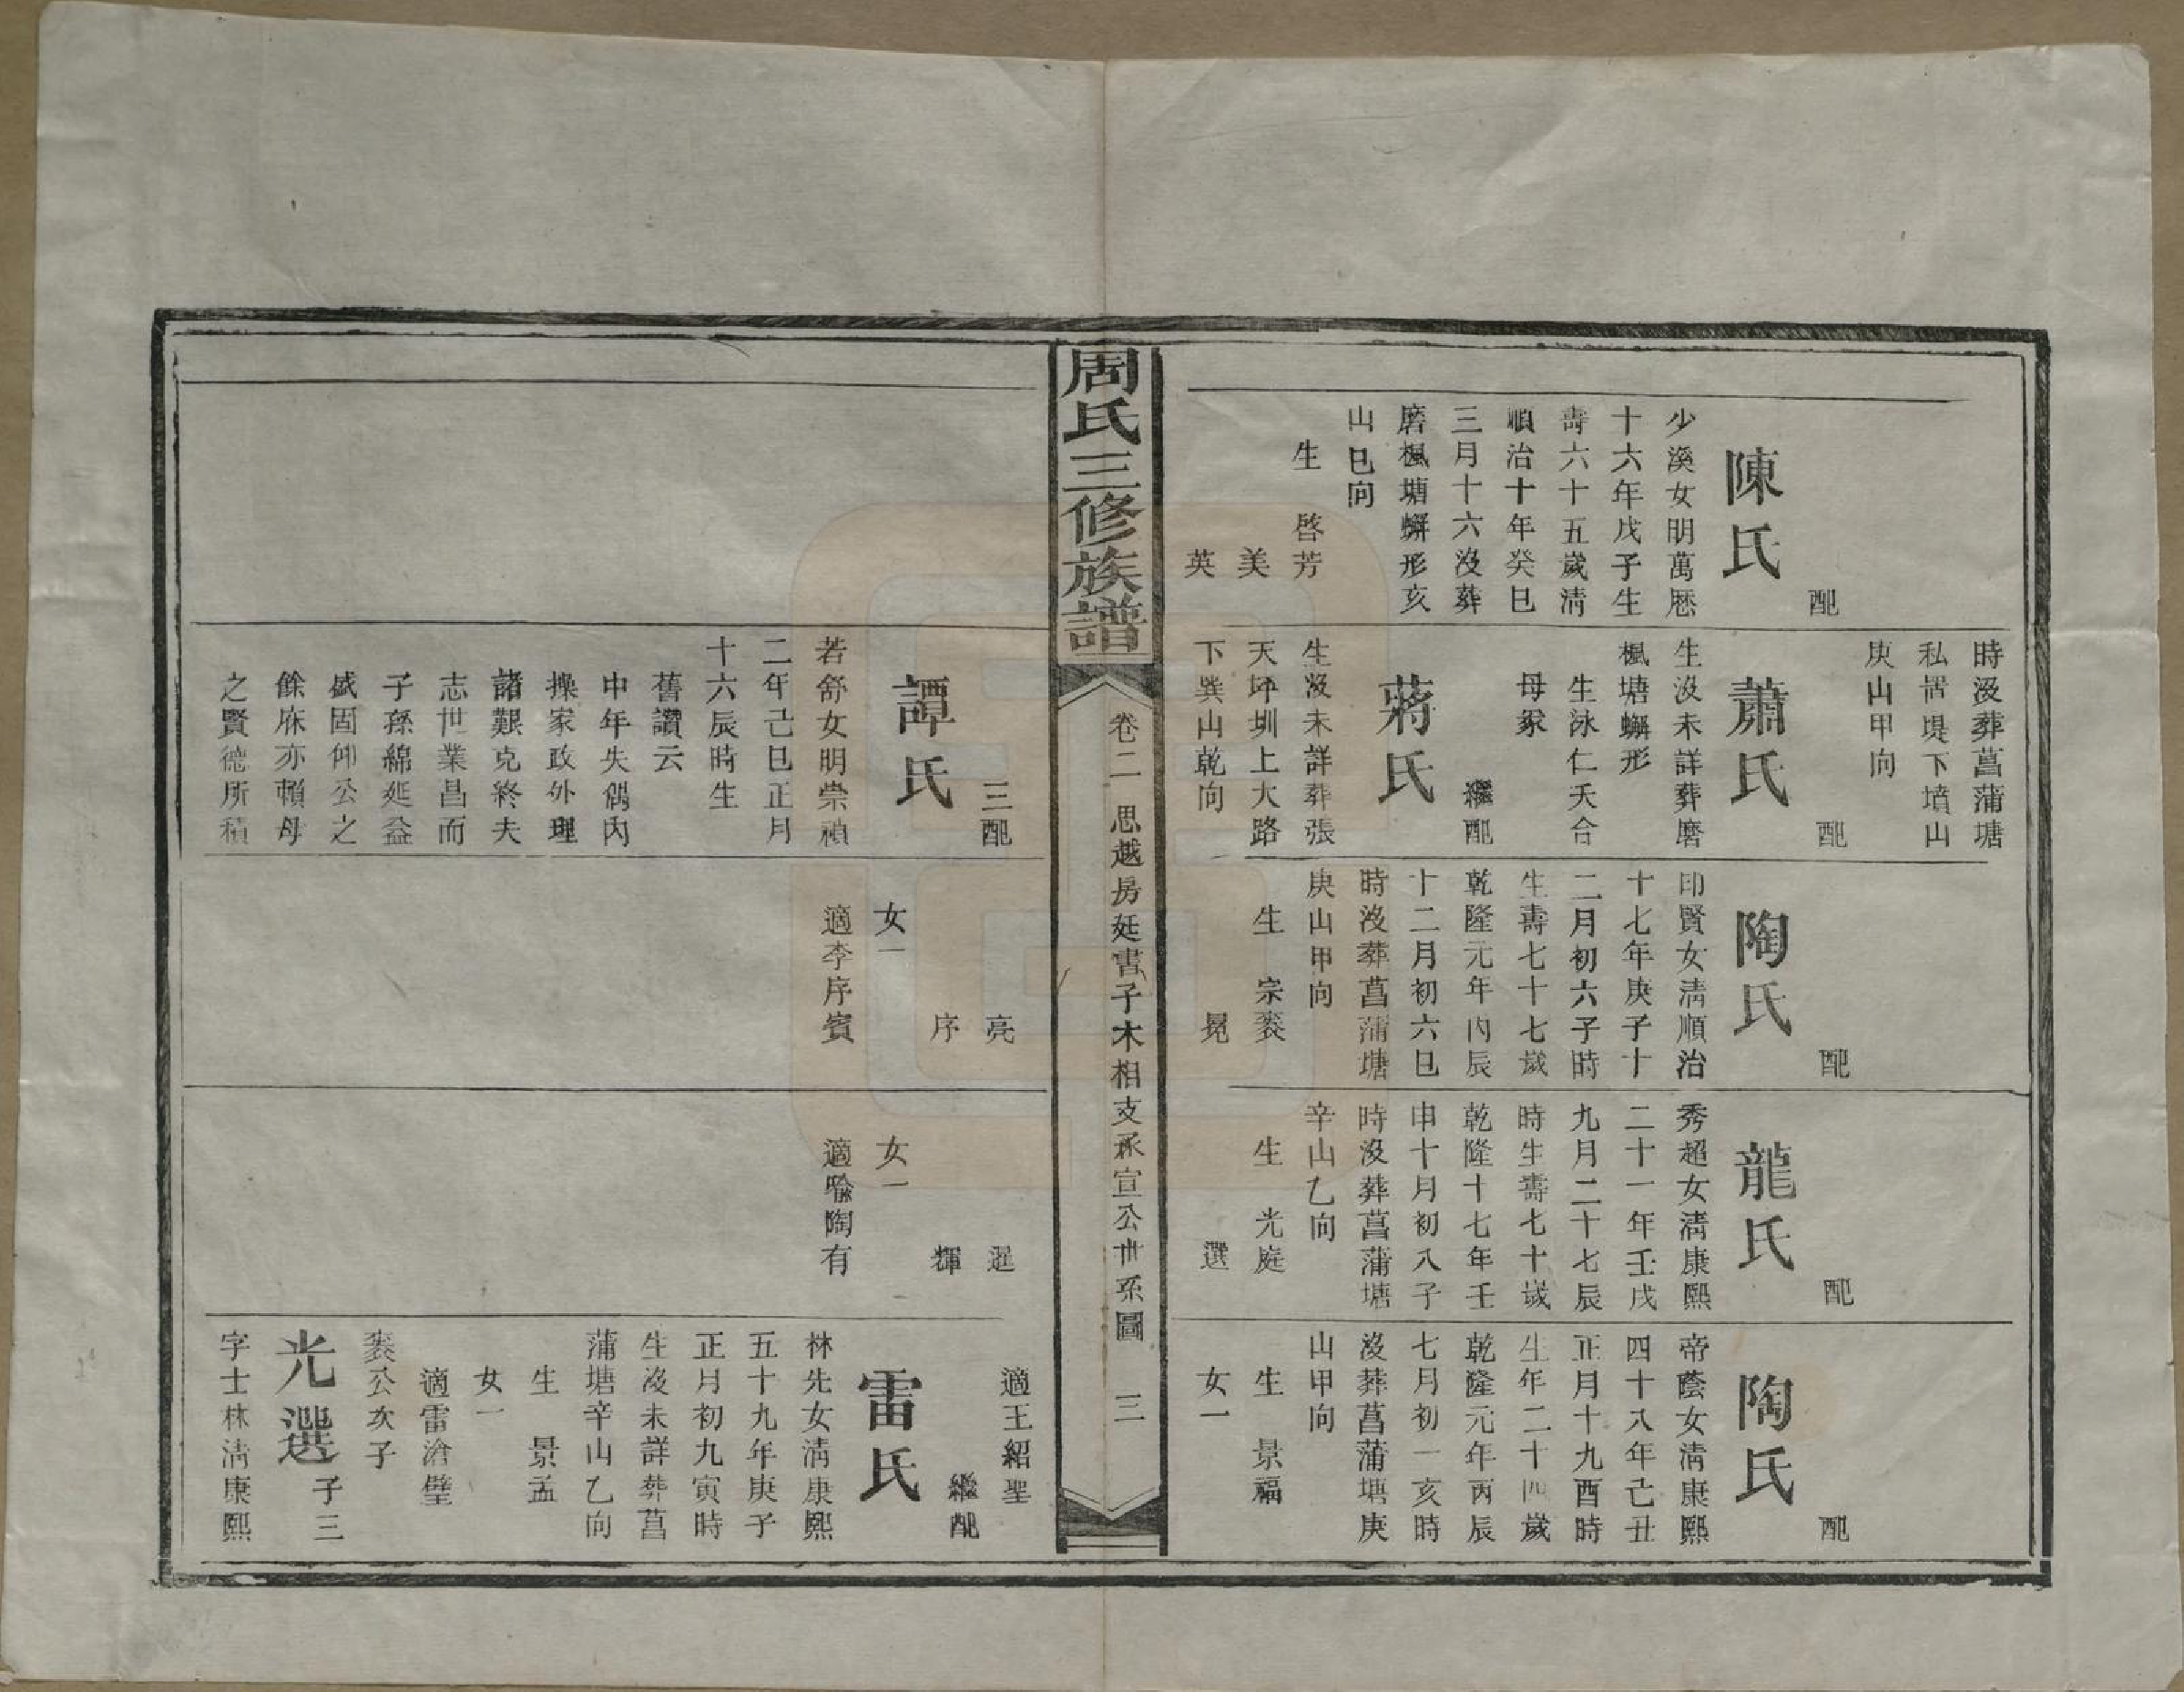 配
陳氏
少溪女明萬厯
十六年戊子生
壽六十五歲清
順治十年癸巳
三月十六沒葬
磨楓塘蠏形亥
山巳向
生　啓芳
美
英
時沒葬菖蒲塘
私㘽堤下墳山
庚山甲向
配
蕭氏
生沒未詳葬磨
楓塘蠏形
生泳仁夭合
母冢
繼配
蔣氏
生沒未詳葬張
天坪圳上大路
下巽山乾向
配
陶氏
印賢女清順治
十七年庚子十
二月初六子時
生壽七十七歲
乾隆元年丙辰
十二月初六巳
時沒葬菖蒲塘
庚山甲向
生　宗袠
冕
配
龍氏
秀超女清康熙
二十一年壬戌
九月二十七辰
時生壽七十歲
乾隆十七年壬
申十月初八子
時沒葬菖蒲塘
辛山乙向
生　光庭
選
配
陶氏
帝蔭女清康熙
四十八年己丑
正月十九酉時
生年二十四歲
乾隆元年丙辰
七月初一亥時
沒葬菖蒲塘庚
山甲向
生　景福
女一
周氏三修族譜
卷二　思越房廷書子木相支承宣公卋系圖　三
三配
譚氏
若舒女明崇禎
二年己巳正月
十六辰時生
舊讚云
中年失偶內
操家政外理
諸艱克終夫
志世業昌而
子孫綿延益
盛固仰公之
餘庥亦賴母
之賢德所積
亮
序
女一
適李序賓
暹
輝
女一
適喻陶有
適王紹聖
繼配
雷氏
林先女清康熙
五十九年庚子
正月初九寅時
生沒未詳葬菖
蒲塘辛山乙向
生　景孟
女一
適雷滄璧
袠公次子
光選　子三
字士林清康熙